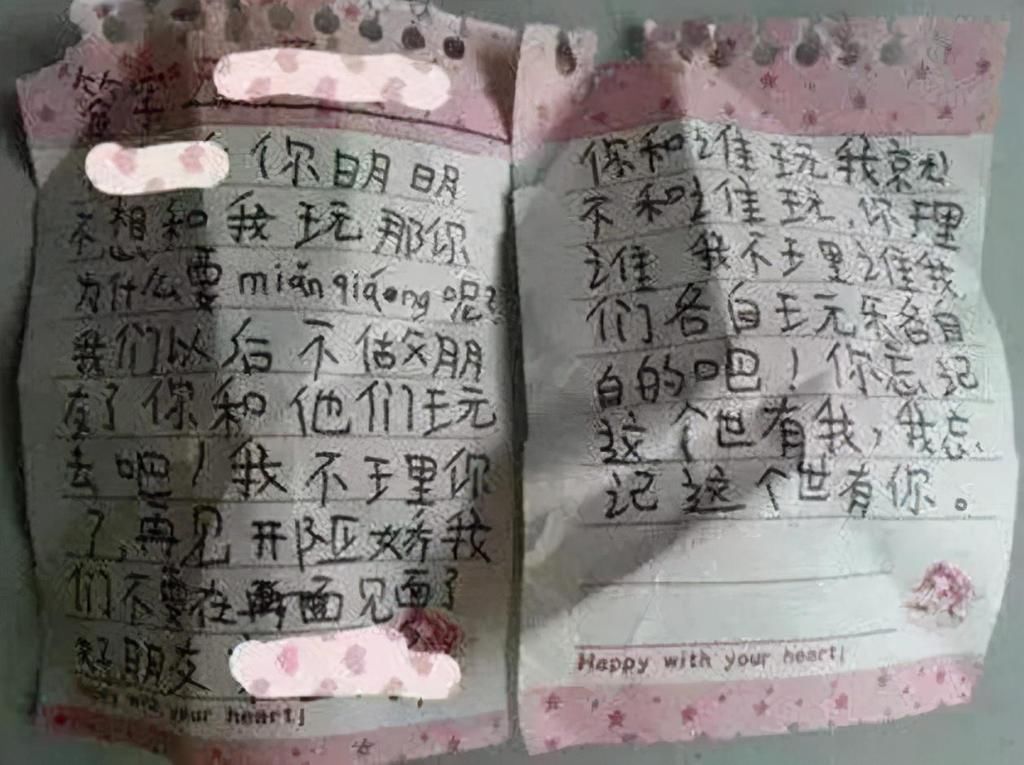 给
你明明
不想和我玩那你
为什么要miǎnqiáng呢?
我们以后不做交朋
友了你和他们玩
去吧!我不理你
了,再见邢亚娇我
们不要在再面见面了
好朋友
your heart!
你和谁玩我就
不和谁玩,你理
谁 我不理谁我
们各自玩乐各自
白的吧!你忘记
这个世有我,我忘
记这个世有你。
Happy with your heart!